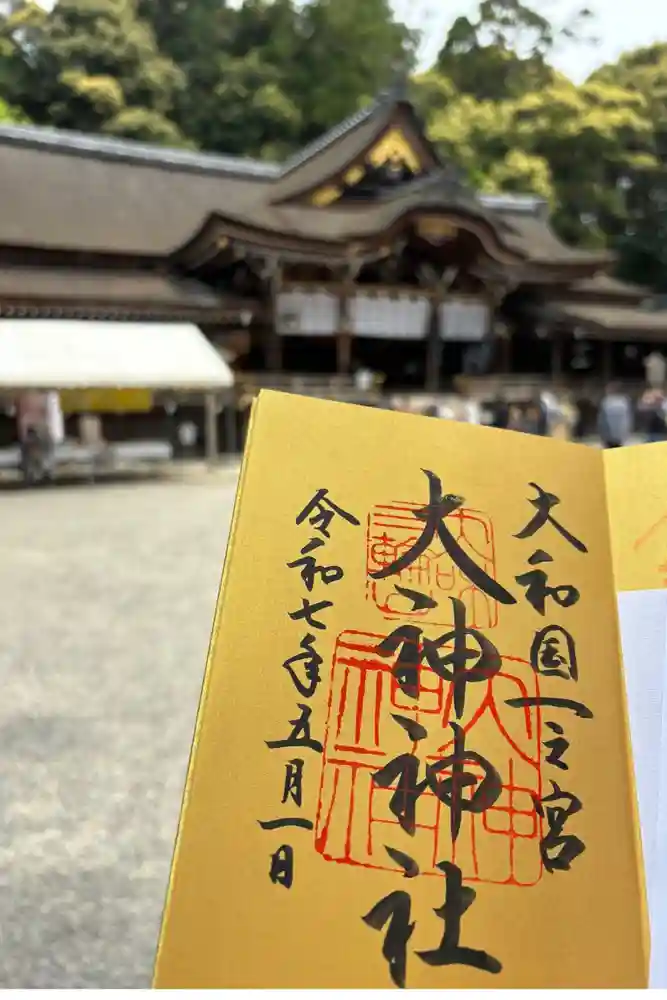 大和国一之宮
大神神社
令和七年五月一日
大神神社